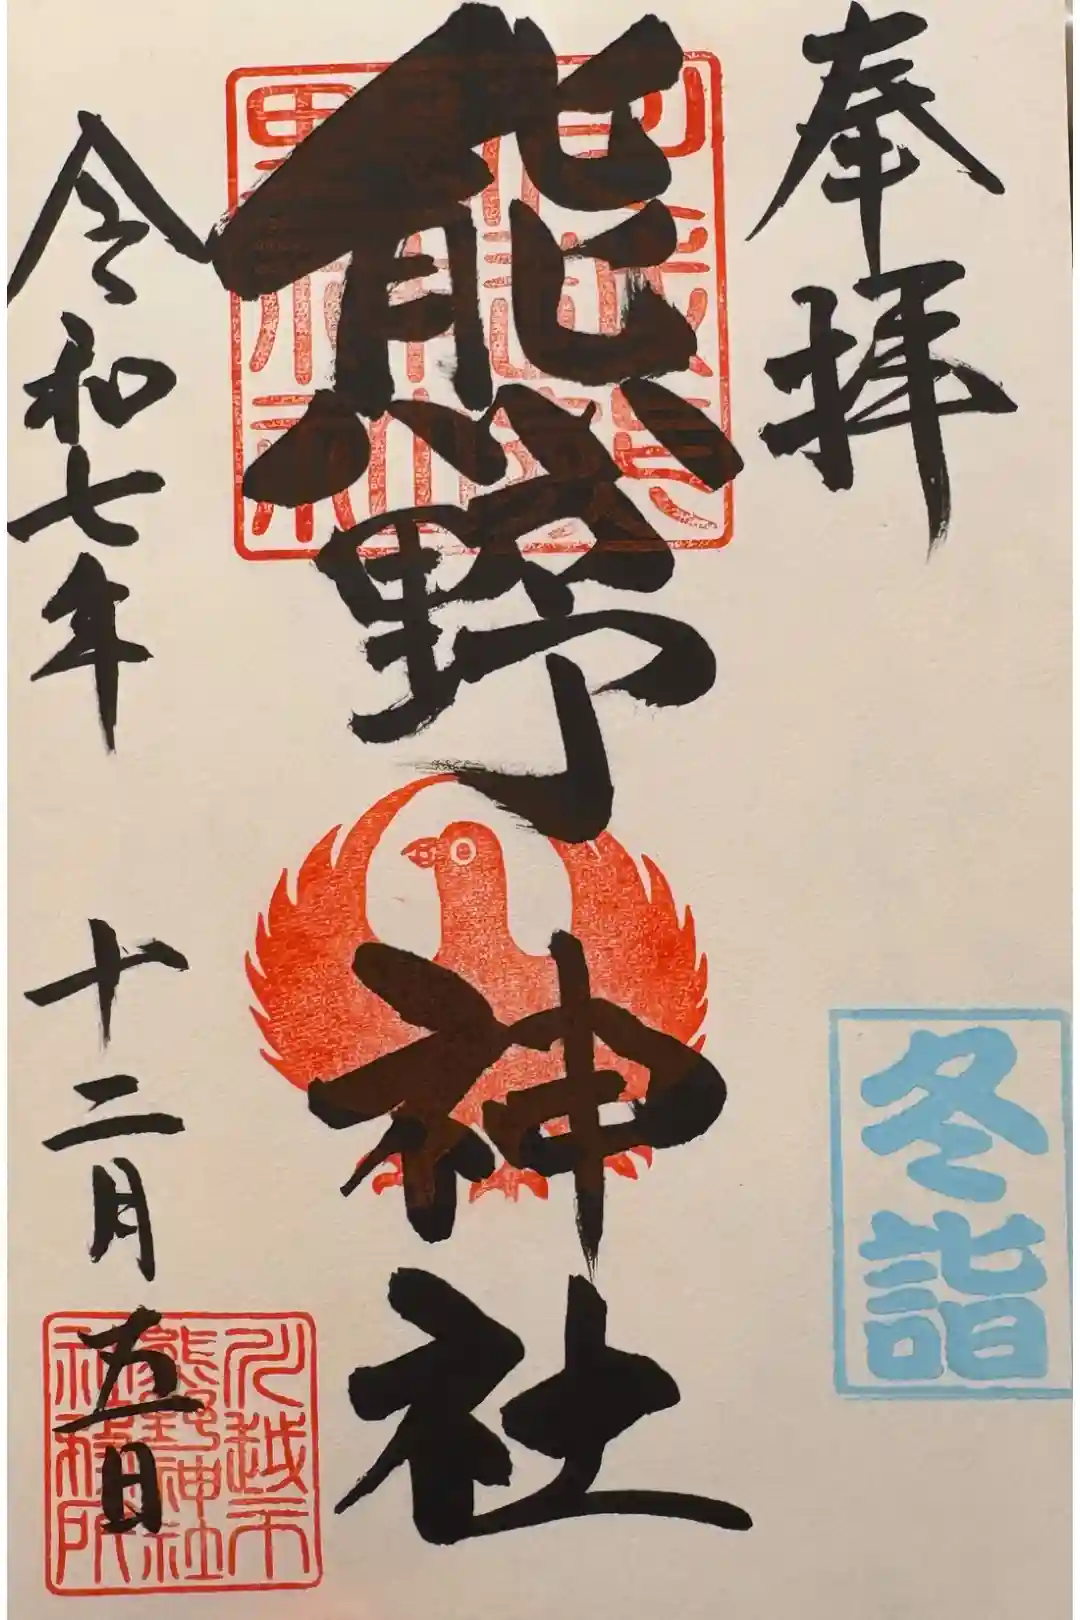 奉拝
冬詣
熊野神社
令和七年 十二月 五日
川越市
熊野神社
社務所